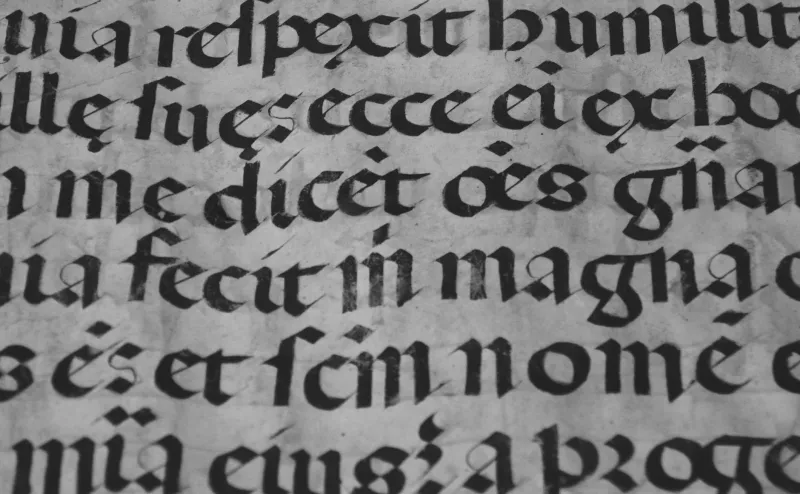 uia respexit humilit
illę suęs ecce ei ex hoc
n me dicẽt oẽs gñar
uia fecit m̃ magna q
s ẽs et scm̃ nomẽ e
mĩa eius; a proge